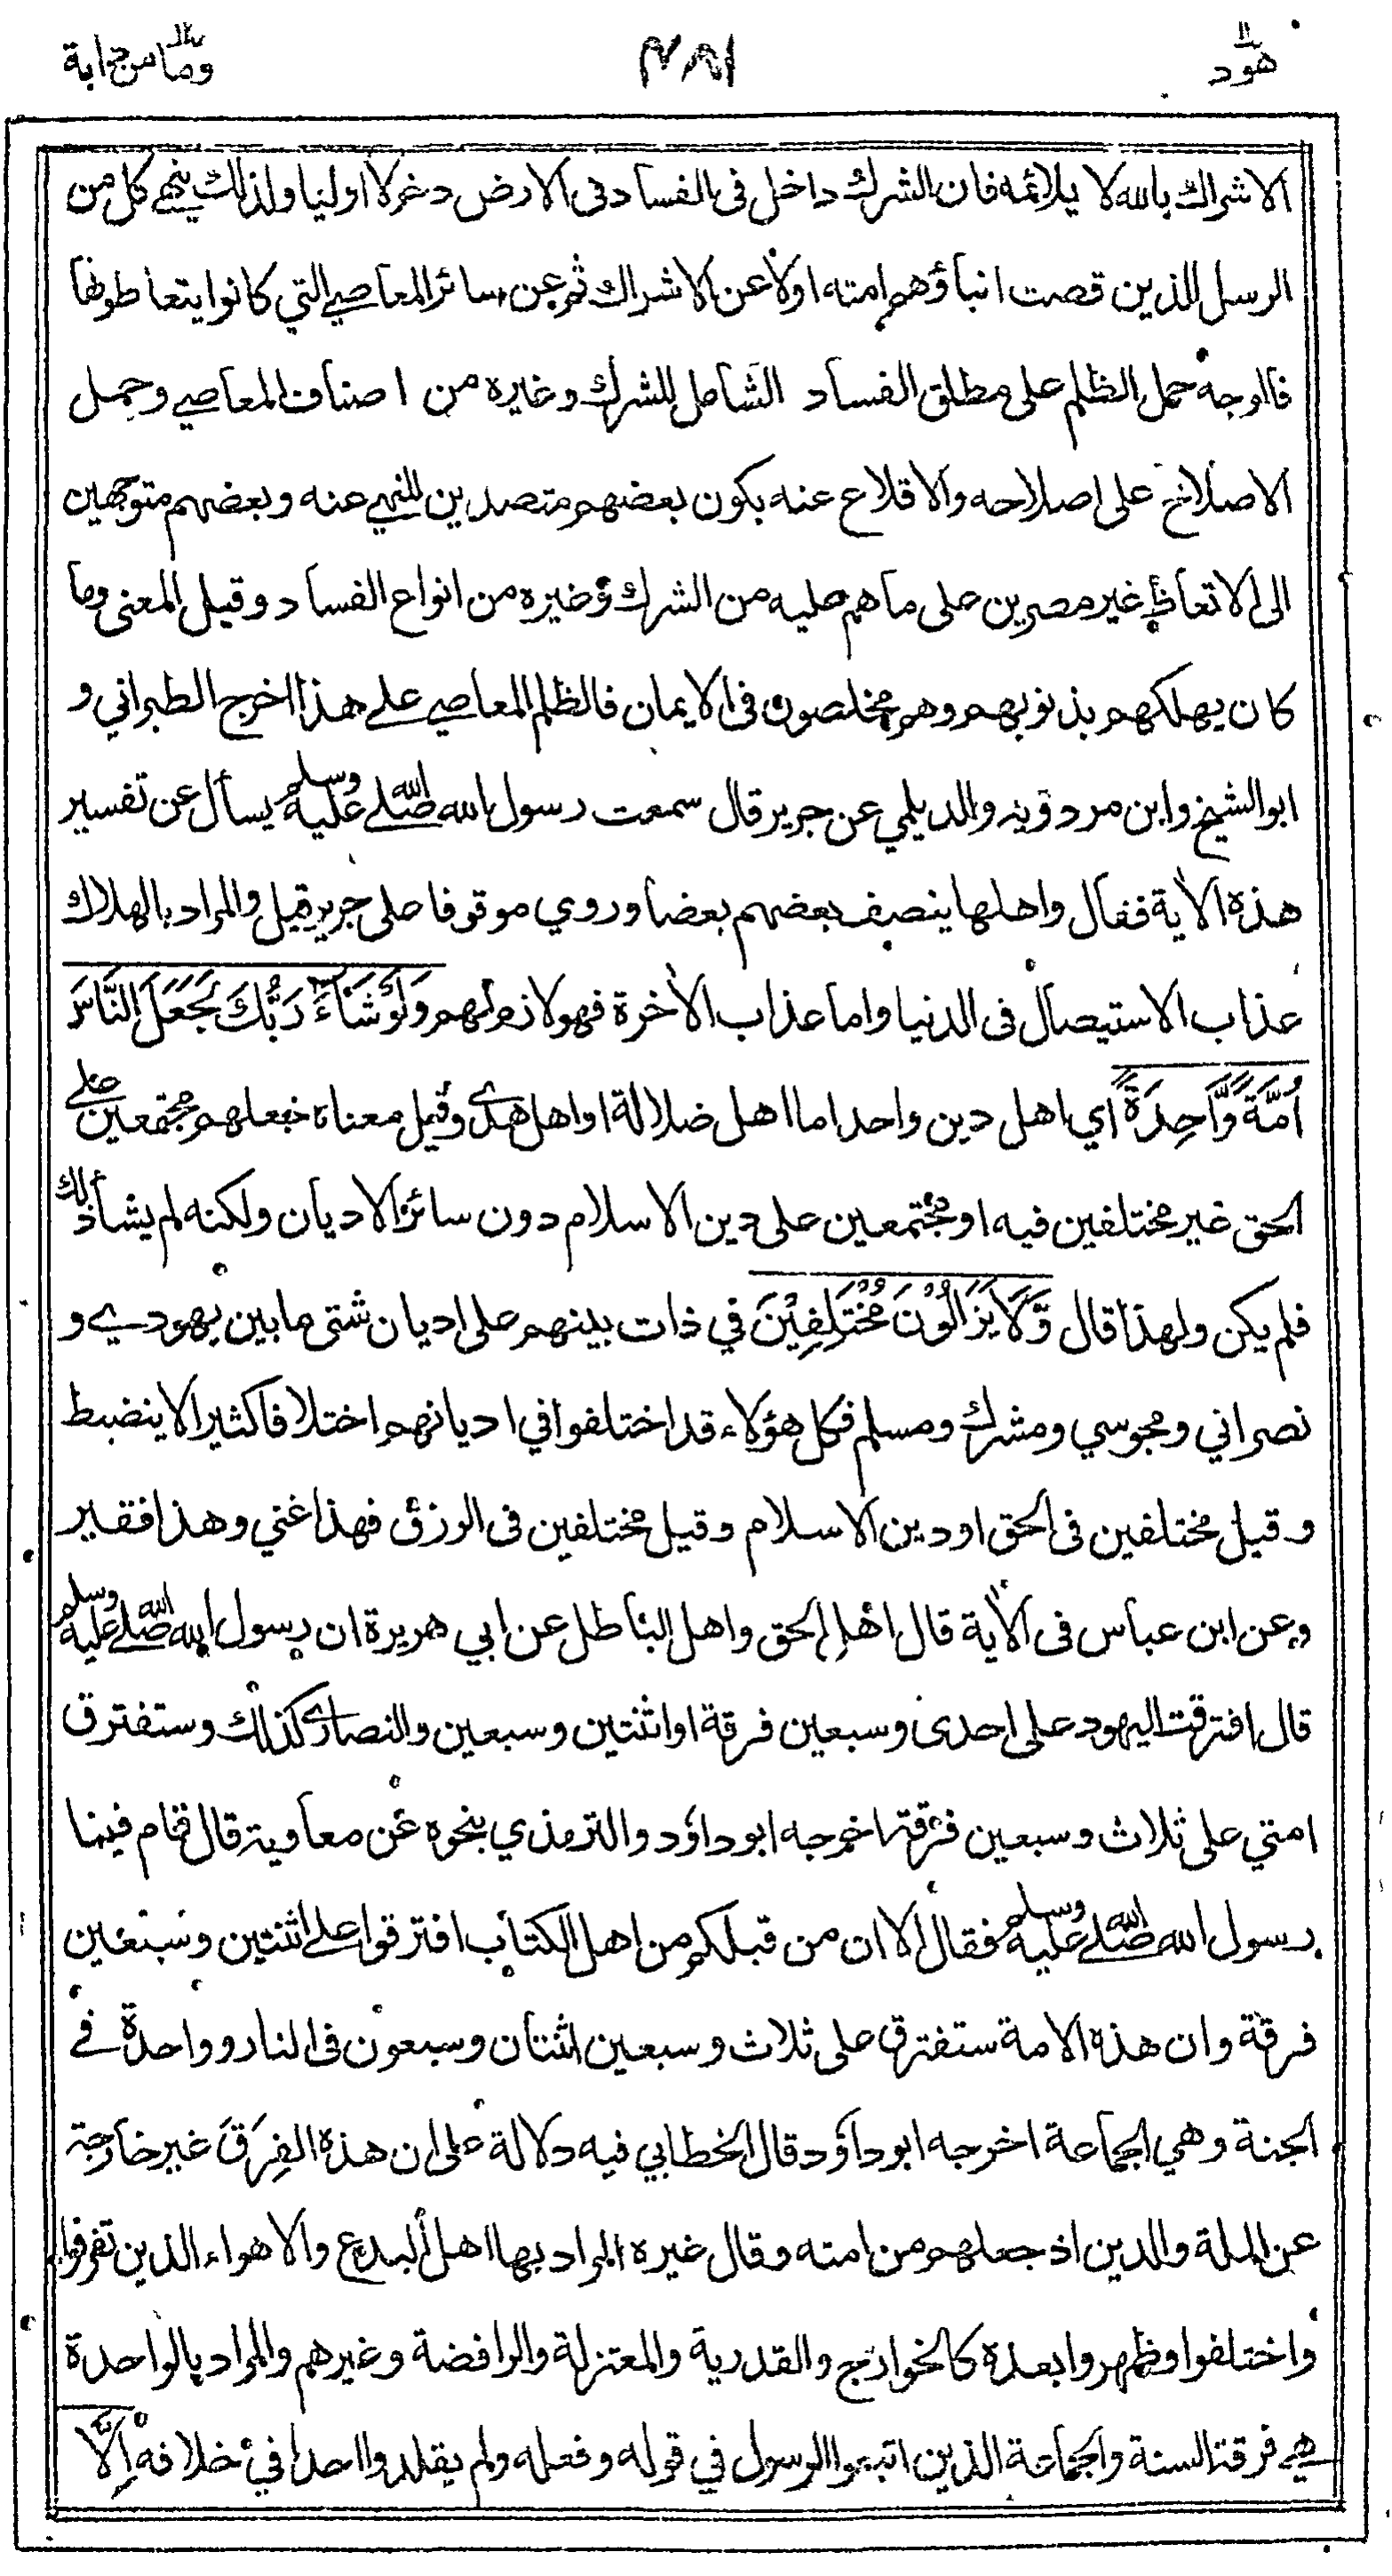 هود ١١
٢٨١
ومامن دابة ١٢
الاشراك بالله لا يلائمه فان الشرك داخل فى الفساد فى الارض دخولا اوليا ولذلك ينهى كل من
الرسل الذين قصت انباؤهم امته اولا عن الاشراك ثم عن سائر المعاصي التي كانوا يتعاطونها
فالوجه حمل الظلم على مطلق الفساد الشامل للشرك وغيره من اصناف المعاصي وحمل
الاصلاح على اصلاحه والاقلاع عنه بكون بعضهم متصدين للنهي عنه وبعضهم متوجهين
الى الاتعاظ غير مصرين على ما هم عليه من الشرك وغيره من انواع الفساد وقيل المعنى وما
كان يهلكهم بذنوبهم وهم مخلصون فى الايمان فالظلم المعاصي على هذا اخرج الطبراني و
ابو الشيخ وابن مردويه والديلمي عن جرير قال سمعت رسول الله صلى الله عليه وسلم يسأل عن تفسير
هذه الاية فقال واهلها ينصف بعضهم بعضا وروي موقوفا على جرير قيل والمراد بالهلاك
عذاب الاستيصال فى الدنيا واما عذاب الاخرة فهو لازم لهم وَلَوْ شَاءَ رَبُّكَ لَجَعَلَ النَّاسَ
اُمَّةً وَّاحِدَةً اي اهل دين واحد اما اهل ضلالة او اهل هدى وقيل معناه لجعلهم مجتمعين على
الحق غير مختلفين فيه او مجتمعين على دين الاسلام دون سائر الاديان ولكنه لم يشأ ذلك
فلم يكن ولهذا قال وَّلَا يَزَالُوْنَ مُخْتَلِفِيْنَ في ذات بينهم على اديان شتى ما بين يهودي و
نصراني ومجوسي ومشرك ومسلم فكل هؤلاء قد اختلفوا في اديانهم اختلافا كثيرا لا ينضبط
وقيل مختلفين فى الحق او دين الاسلام وقيل مختلفين فى الرزق فهذا غني وهذا فقير
وعن ابن عباس فى الاية قال اهل الحق واهل الباطل عن ابي هريرة ان رسول الله صلى الله عليه وسلم
قال افترقت اليهود على احدى وسبعين فرقة او اثنتين وسبعين والنصارى كذلك وستفترق
امتي على ثلاث وسبعين فرقة اخرجه ابو داؤد والترمذي بنحوه عن معاوية قال قام فينا
رسول الله صلى الله عليه وسلم فقال الا ان من قبلكم من اهل الكتاب افترقوا على اثنتين وسبعين
فرقة وان هذه الامة ستفترق على ثلاث وسبعين اثنتان وسبعون فى النار وواحدة في
الجنة وهي الجماعة اخرجه ابو داؤد قال الخطابي فيه دلالة على ان هذه الفِرَقَ غير خارجة
عن الملة والدين اذ جعلهم من امته وقال غيره المراد بها اهل البدع والاهواء الذين تفرقوا
واختلفوا وظهروا بعده كالخوارج والقدرية والمعتزلة والرافضة وغيرهم والمراد بالواحدة
هي فرقة السنة والجماعة الذين اتبعوا الرسول في قوله وفعله ولم يقلدوا احدا في خلافه اِلَّا